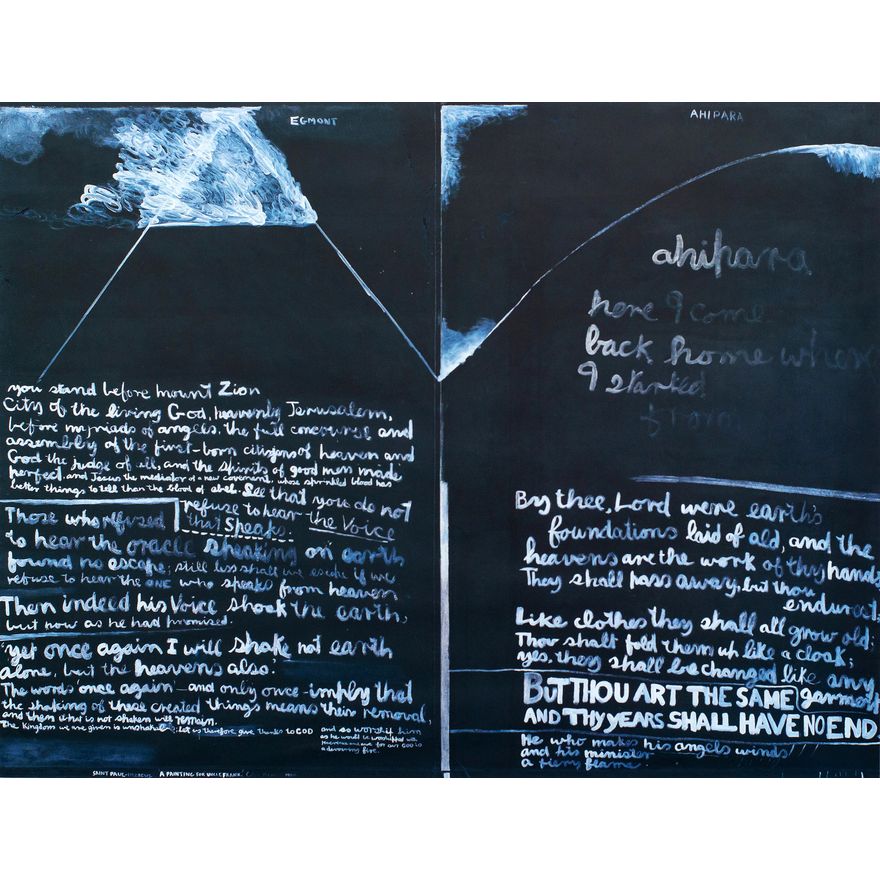 EGMONT
you stand before mount Zion
City of the living God, heavenly Jerusalem,
before myriads of angels, the full concourse and
assembly of the first-born citizens of heaven and
God the judge of all, and the spirits of good men made
perfect, and Jesus the mediator of a new covenant, whose sprinkled blood has
better things to tell than the blood of abel. See that you do not
refuse to hear the Voice
that Speaks.
Those who refused
to hear the oracle speaking on earth
found no escape; still less shall we escape if we
refuse to hear the ONE who speaks from heaven
Then indeed his Voice shook the earth,
but now as he had promised.
'yet once again I will shake not earth
alone, but the heavens also.'
The words once again — and only once — imply that
the shaking of these created things means their removal,
and then what is not shaken will remain.
The Kingdom we are given is unshakable; let us therefore give thanks to GOD
and so worship him
as he would be worshipped with
reverence and awe for our GOD is
a devouring fire.
SAINT PAUL HEBREWS A PAINTING FOR UNCLE FRANK.
AHIPARA
ahipara
here I come
back home where
I started
from
By thee, Lord were earth's
foundations laid of old, and the
heavens are the work of thy hands
They shall pass away, but thou
endurest;
Like clothes they shall all grow old;
Thou shalt fold them up like a cloak;
yes, they shall be changed like any
garment
BUT THOU ART THE SAME
AND THY YEARS SHALL HAVE NO END.
He who makes his angels winds
and his ministers
a fiery flame